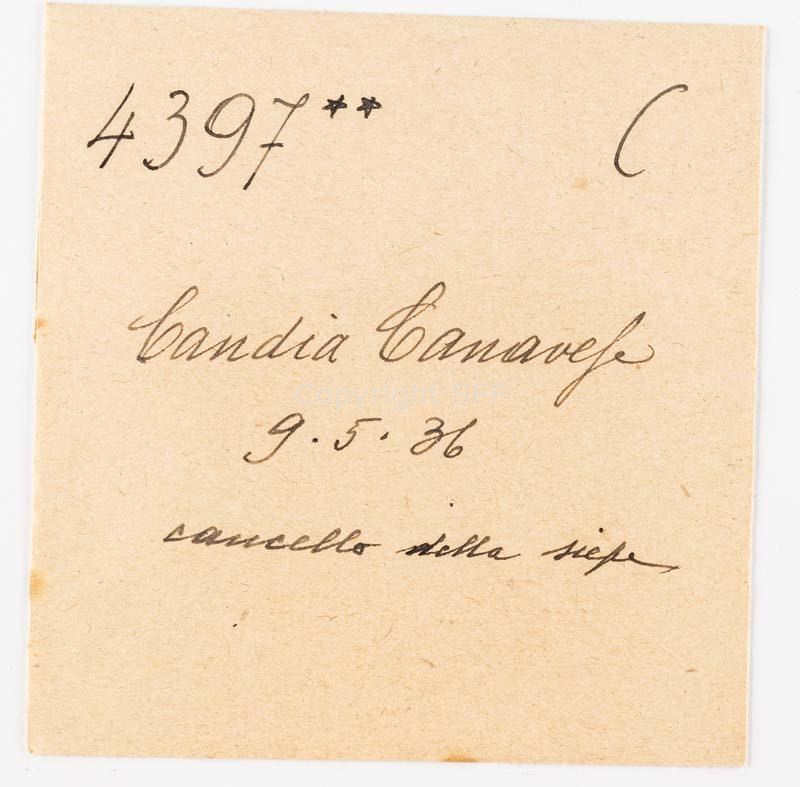 4397** C
Candia Canavese
9.5.36
cancello della siepe